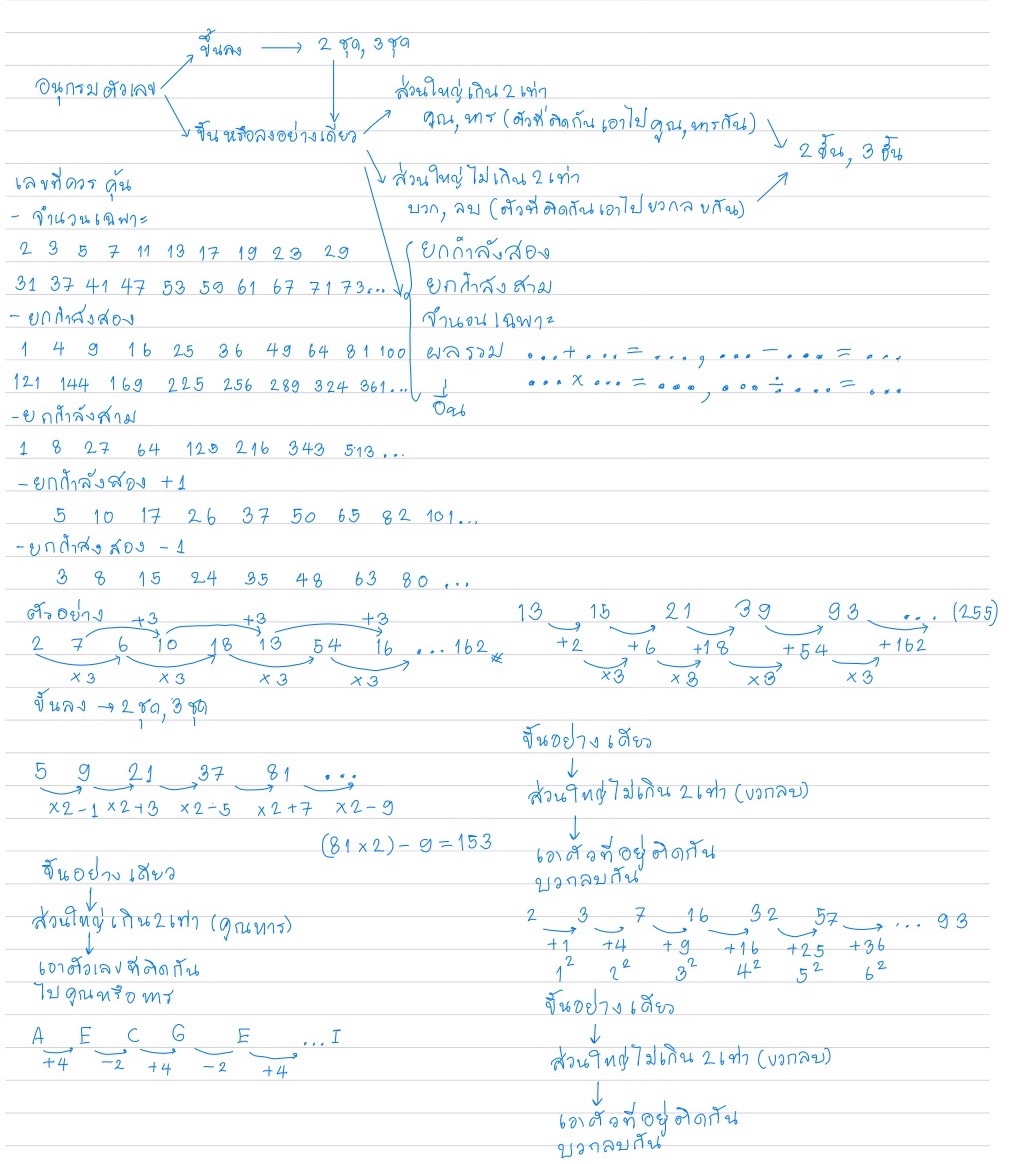 ขึ้นลง → 2 ชุด, 3 ชุด
อนุกรมตัวเลข
ส่วนใหญ่เกิน 2 เท่า
คูณ, หาร (ตัวที่ติดกันเอาไปคูณ, หารกัน)
ขึ้นหรือลงอย่างเดียว
2 ชั้น, 3 ชั้น
ส่วนใหญ่ไม่เกิน 2 เท่า
บวก, ลบ (ตัวที่ติดกันเอาไปบวกลบกัน)
เลขที่ควรคุ้น
- จำนวนเฉพาะ
2 3 5 7 11 13 17 19 23 29
31 37 41 47 53 59 61 67 71 73...
- ยกกำลังสอง
1 4 9 16 25 36 49 64 81 100
121 144 169 225 256 289 324 361...
- ยกกำลังสาม
1 8 27 64 125 216 343 513...
- ยกกำลังสอง +1
5 10 17 26 37 50 65 82 101...
- ยกกำลังสอง -1
3 8 15 24 35 48 63 80 ...
ยกกำลังสอง
ยกกำลังสาม
จำนวนเฉพาะ
ผลรวม ...+...=..., ...-...=...
...×...=..., ...÷...=...
อื่น
ตัวอย่าง
+3 +3 +3
2 7 6 10 18 13 54 16 ... 162
×3 ×3 ×3 ×3
ขึ้นลง → 2 ชุด, 3 ชุด
13 15 21 39 93 .... (255)
+2 +6 +18 +54 +162
×3 ×3 ×3 ×3
ขึ้นอย่างเดียว
ส่วนใหญ่ไม่เกิน 2 เท่า (บวกลบ)
เอาตัวที่อยู่ติดกัน
บวกลบกัน
5 9 21 37 81 ...
×2-1 ×2+3 ×2-5 ×2+7 ×2-9
(81×2)-9=153
ขึ้นอย่างเดียว
ส่วนใหญ่เกิน 2 เท่า (คูณหาร)
เอาตัวเลขที่ติดกัน
ไปคูณหรือหาร
2 3 7 16 32 57 ... 93
+1 +4 +9 +16 +25 +36
1² 2² 3² 4² 5² 6²
ขึ้นอย่างเดียว
ส่วนใหญ่ไม่เกิน 2 เท่า (บวกลบ)
เอาตัวที่อยู่ติดกัน
บวกลบกัน
A E C G E ... I
+4 -2 +4 -2 +4